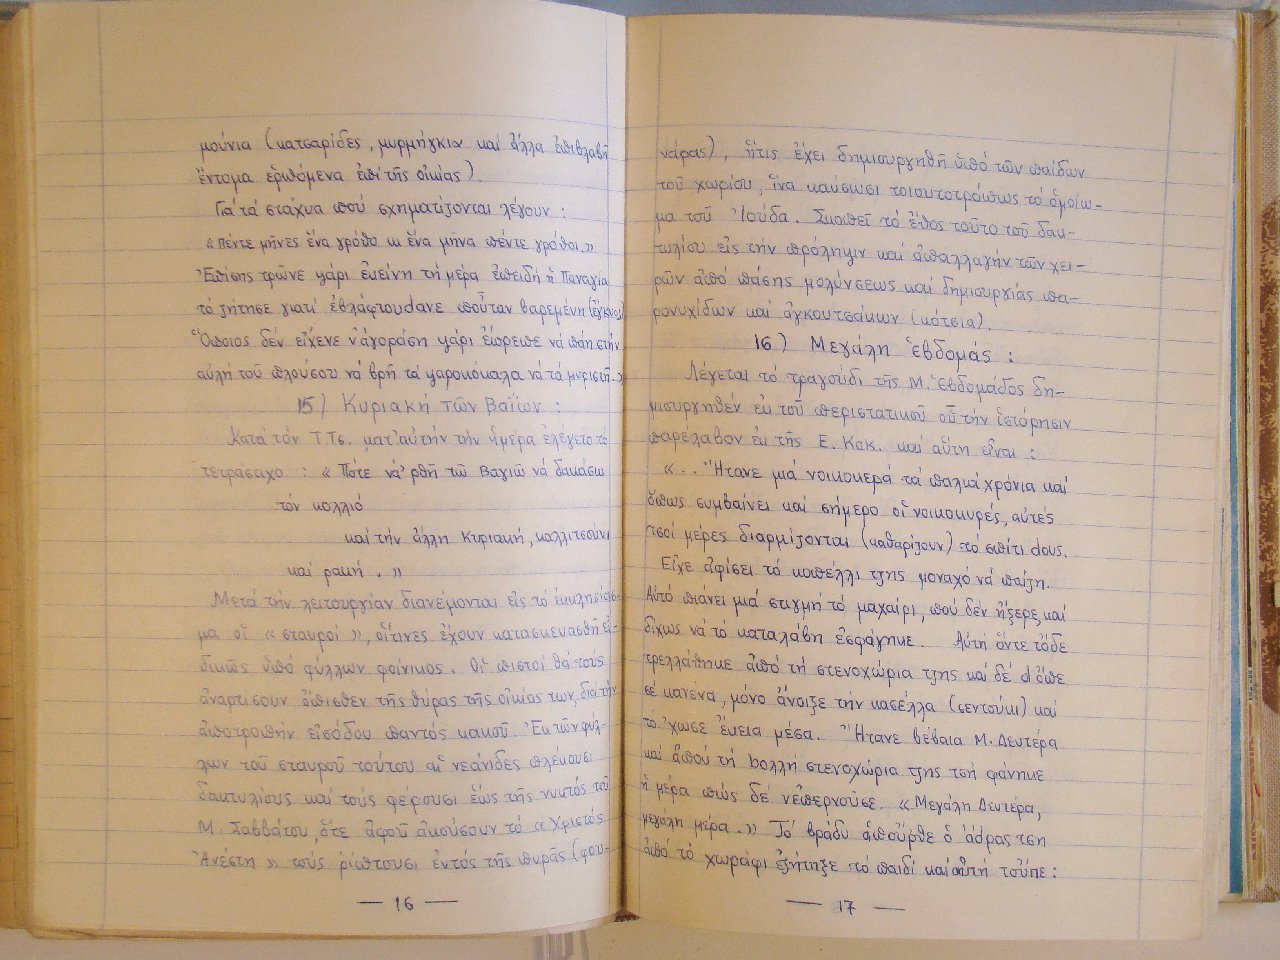 μούνια (κατσαρίδες, μυρμήγκια καί ἄλλα ἐπιβλαβῆ
ἔντομα ἑρπόμενα ἐπί τῆς οἰκίας).
Γιά τά στάχυα πού σχηματίζονται λέγουν :
« Πέντε μῆνες ἕνα γρόθο κι ἕνα μῆνα πέντε γρόθοι.»
Ἐπίσης τρῶνε ψάρι ἐκείνη τή μέρα ἐπειδή ἡ Παναγία
τό ζήτησε γιατί ἐβλάφτουdανε ποὖταν βαρεμένη (ἔγκυος)
Ὅποιος δέν εἶχενε ν'ἀγοράση ψάρι ἔπρεπε νά πάη στήν
αὐλή τοῦ πλούσου νά βρῆ τά ψαροκόκαλα νά τά μυριστῆ.»
15) Κυριακή τῶν Βαΐων :
Κατά τόν Τ.Τς. κατ'αὐτήν τήν ἡμέρα ἐλέγετο τό
τετράστιχο : « Πότε νά'ρθῆ τῶ Βαγιῶ νά δακάσω
τόν κολλιό
καί τήν ἄλλη Κυριακή, καλλιτσούνι
καί ρακή. »
Μετά τήν λειτουργίαν διανέμονται εἰς τό ἐκκλησίασ-
μα οἱ « σταυροί », οἵτινες ἔχουν κατασκευασθῆ εἰ-
δικῶς ὑπό φύλλων φοίνικος. Οἱ πιστοί θά τούς
ἀναρτίσουν ὄπισθεν τῆς θύρας τῆς οἰκίας των, διά τήν
ἀποτροπήν εἰσόδου παντός κακοῦ. Ἐκ τῶν φύλ-
λων τοῦ σταυροῦ τούτου αἱ νεάνιδες πλέκουσι
δακτυλίους καί τούς φέρουσι ἕως τῆς νυκτός τοῦ
Μ. Σαββάτου, ὅτε ἀφοῦ ἀκούσουν τό « Χριστός
Ἀνέστη » τούς ρίπτουσι ἐντός τῆς πυρᾶς (φου-
— 16 —
νάρας), ἥτις ἔχει δημιουργηθῆ ὑπό τῶν παίδων
τοῦ χωρίου, ἵνα καύσωσι τοιουτοτρόπως τό ὁμοίω-
μα τοῦ Ἰούδα. Σκοπεῖ τό ἔθος τοῦτο τοῦ δακ-
τυλίου εἰς τήν πρόληψιν καί ἀπαλλαγήν τῶν χει-
ρῶν ἀπό πάσης μολύνσεως καί δημιουργίας πα-
ρονυχίδων καί ἀγκουτσάκων (κότσια).
16) Μεγάλη Ἑβδομάς :
Λέγεται τό τραγούδι τῆς Μ. Ἑβδομάδος δη-
μιουργηθέν ἐκ τοῦ περιστατικοῦ οὗ τήν ἱστόρησιν
παρέλαβον ἐκ τῆς Ε. Κοκ. καί αὕτη εἶναι :
«.. Ἤτανε μιά νοικοκερά τά παλιά χρόνια καί
ὅπως συμβαίνει καί σήμερο οἱ νοικοκυρές, αὐτές
τσοί μέρες διαρμίζονται (καθαρίζουν) τό σπίτι dους.
Εἶχε ἀφίσει τό κοπέλλι τζης μοναχό νά παίζη.
Αὐτό πιάνει μιά στιγμή τό μαχαίρι, πού δέν ἤξερε, καί
δίχως νά τό καταλάβη ἐσφάγηκε. Αὐτή ὄντε τόδε
τρελλάθηκε ἀπό τή στενοχώρια τζης καί δέ dὄπε
σέ κανένα, μόνο ἄνοιξε τήν κασέλλα (σεντούκι) καί
τὄχωσε ἔκεια μέσα. Ἤτανε βέβαια Μ. Δευτέρα
καί ἀπού τή bολλή στενοχώρια τζης τσή φάνηκε
ἡ μέρα πώς δέ νεπερνοῦσε. « Μεγάλη Δευτέρα,
μεγάλη μέρα.» Τό βράδυ ἀποὖρθε ὁ ἄdρας τση
ἀπό τό χωράφι ἐζήτηξε τό παιδί καί αὐτή τοὖπε :
— 17 —